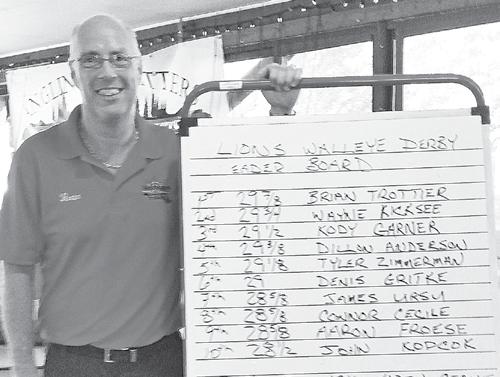 ANGLIN TTER
LIONS WALLEYE DERBY
EADER BOARD
1st 29 7/8 BRIAN TROTTIER
2nd 29 3/4 WAYNE KICKSEE
3rd 29 1/2 KODY GARNER
4th 29 3/8 DILLON ANDERSON
5th 29 1/8 TYLER ZIMMERMAN
6th 29 DENIS GRITKE
7th 28 5/8 JAMES URSU
8th 28 5/8 CONNOR CECILE
9th 28 5/8 AARON FROESE
10th 28 1/2 JOHN KODCOK